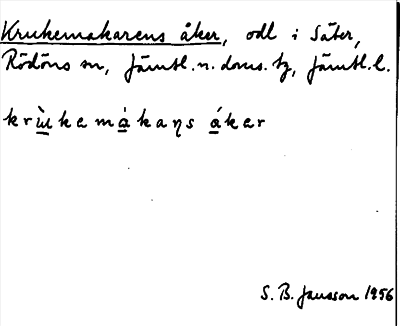 Krukemakarens åker, odl i Säter,
Rödöns sn, Jämtl. n. doms. tg, Jämtl. l.
krùkemákaṇs ákar
S. B. Jansson 1956